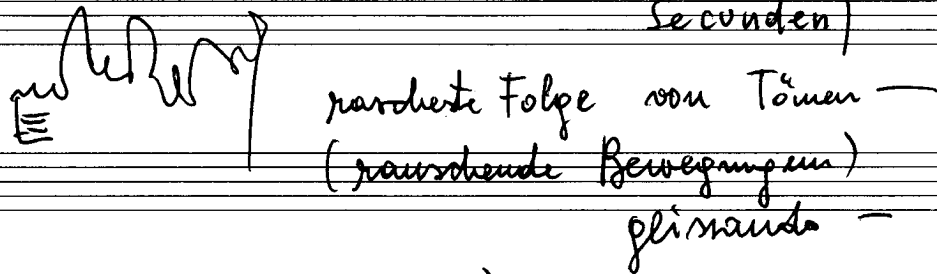 Secunden)
rascheste Folge von Tönen —
(rauschende Bewegungen)
glissando —